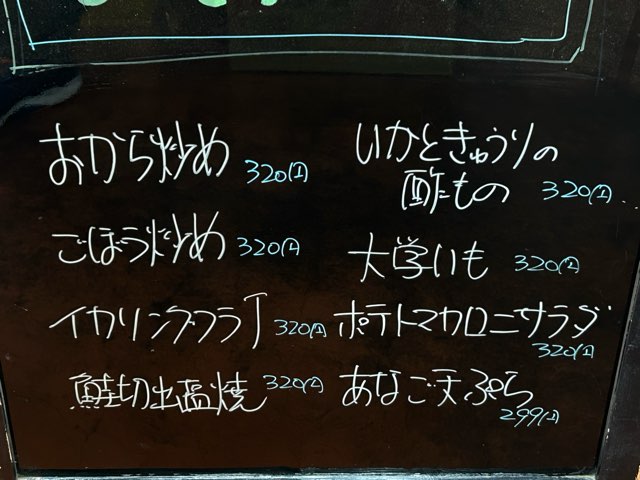 おから炒め 320円
ごぼう炒め 320円
イカリングフライ 320円
鮭切出塩焼 320円
いかときゅうりの
酢のもの 320円
大学いも 320円
ポテトマカロニサラダ
320円
あなご天ぷら
299円